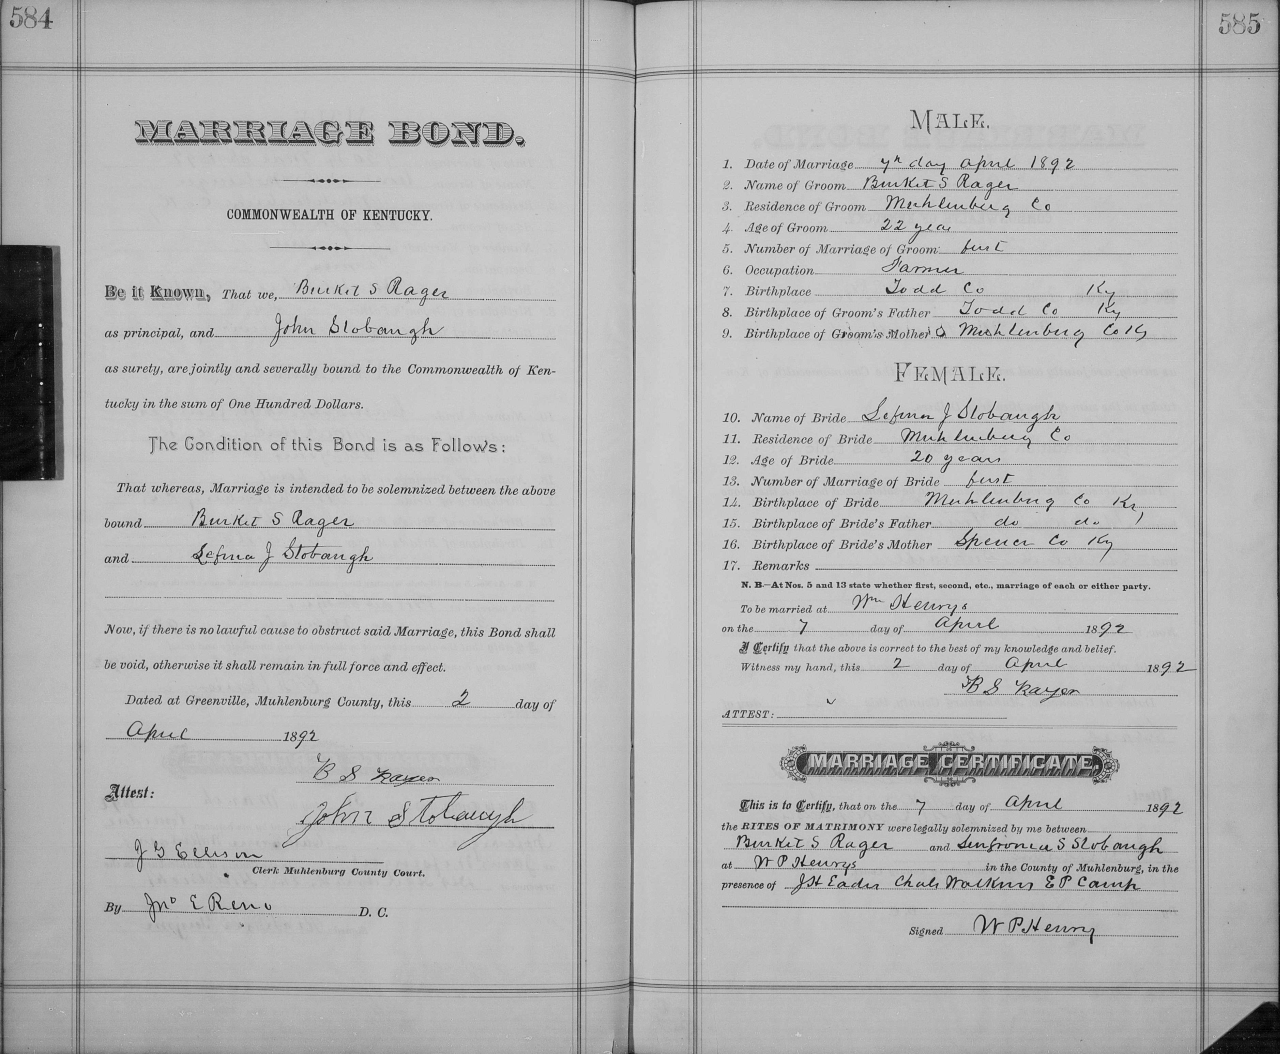 584
MARRIAGE BOND.
COMMONWEALTH OF KENTUCKY.
Be it Known, That we, Burket S Rager
as principal, and John Stobaugh
as surety, are jointly and severally bound to the Commonwealth of Ken-
tucky in the sum of One Hundred Dollars.
The Condition of this Bond is as Follows:
That whereas, Marriage is intended to be solemnized between the above
bound Burket S Rager
and Lefina J Stobaugh
Now, if there is no lawful cause to obstruct said Marriage, this Bond shall
be void, otherwise it shall remain in full force and effect.
Dated at Greenville, Muhlenburg County, this 2 day of
April 1892
B S Rager
Attest:
John Stobaugh
J G Ellison
Clerk Muhlenburg County Court.
By Jno E Reno D. C.
585
MALE.
1. Date of Marriage 7th day April 1892
2. Name of Groom Burket S Rager
3. Residence of Groom Muhlenburg Co
4. Age of Groom 22 year
5. Number of Marriage of Groom: first
6. Occupation Farmer
7. Birthplace Todd Co Ky
8. Birthplace of Groom's Father Todd Co Ky
9. Birthplace of Groom's Mother Muhlenburg Co Ky
FEMALE.
10. Name of Bride Lefina J Stobaugh
11. Residence of Bride Muhlenburg Co
12. Age of Bride 20 years
13. Number of Marriage of Bride first
14. Birthplace of Bride Muhlenburg Co Ky
15. Birthplace of Bride's Father do do
16. Birthplace of Bride's Mother Spencer Co Ky
17. Remarks
N. B.—At Nos. 5 and 13 state whether first, second, etc., marriage of each or either party.
To be married at Wm Henrys
on the 7 day of April 1892
I Certify that the above is correct to the best of my knowledge and belief.
Witness my hand, this 2 day of April 1892
B S Rager
ATTEST:
MARRIAGE CERTIFICATE.
This is to Certify, that on the 7 day of April 1892
the RITES OF MATRIMONY were legally solemnized by me between
Burket S Rager and S Stobaugh
at W P Henrys in the County of Muhlenburg, in the
presence of J H Eades Chals Watkins E P Camp
Signed W P Henry